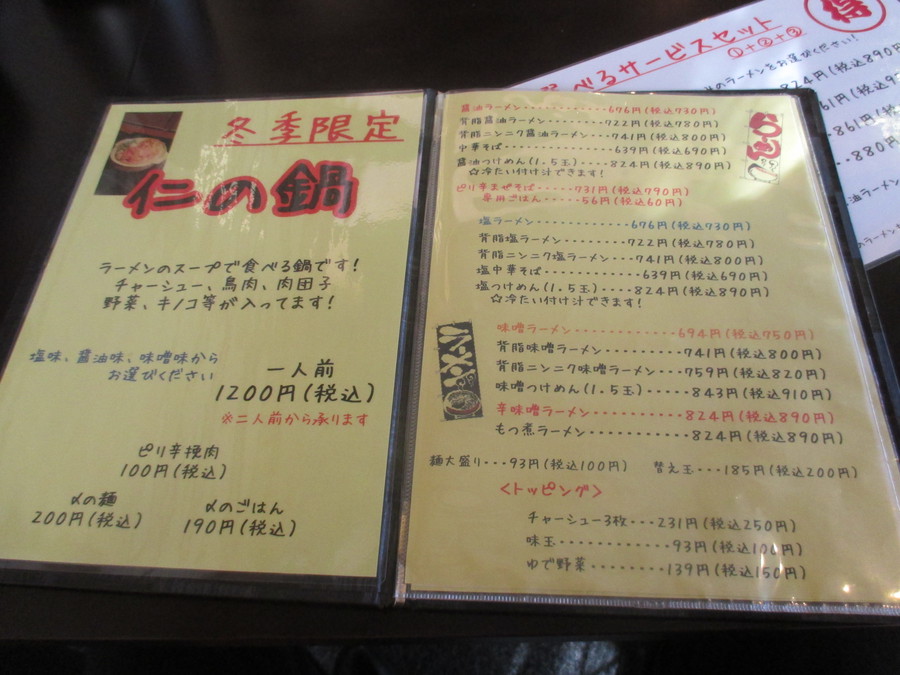 冬季限定
仁の鍋
ラーメンのスープで食べる鍋です！
チャーシュー、鳥肉、肉団子
野菜、キノコ等が入ってます！
塩味、醤油味、味噌味から
お選びください
一人前
1200円(税込)
※二人前から承ります
ピリ辛挽肉
100円(税込)
〆の麺
200円(税込)
〆のごはん
190円(税込)
醤油ラーメン・・・・・・・・・・・・676円(税込730円)
背脂醤油ラーメン・・・・・・・・722円(税込780円)
背脂ニンニク醤油ラーメン・・・・741円(税込800円)
中華そば・・・・・・・・・・・・・・639円(税込690円)
醤油つけめん(1.5玉)・・・・・・824円(税込890円)
☆冷たい付け汁できます！
ピリ辛まぜそば・・・・・・731円(税込790円)
専用ごはん・・・・・56円(税込60円)
塩ラーメン・・・・・・・・・・・・・・676円(税込730円)
背脂塩ラーメン・・・・・・・・・・722円(税込780円)
背脂ニンニク塩ラーメン・・・・741円(税込800円)
塩中華そば・・・・・・・・・・・・639円(税込690円)
塩つけめん(1.5玉)・・・・・・・824円(税込890円)
☆冷たい付け汁できます！
ラーメン
味噌ラーメン・・・・・・・・・・・・694円(税込750円)
背脂味噌ラーメン・・・・・・・・741円(税込800円)
背脂ニンニク味噌ラーメン・・・・759円(税込820円)
味噌つけめん(1.5玉)・・・・・・843円(税込910円)
辛味噌ラーメン・・・・・・・・・・824円(税込890円)
もつ煮ラーメン・・・・・・・・・・824円(税込890円)
麺大盛り・・・93円(税込100円)
替え玉・・・185円(税込200円)
<トッピング>
チャーシュー3枚・・・231円(税込250円)
味玉・・・・・・・・・・・・93円(税込100円)
ゆで野菜・・・・・・・・139円(税込150円)
得
べるサービスセット
①+②+③
のラーメンをお選びください！
824円(税込890円)
861円
880円
油ラーメン